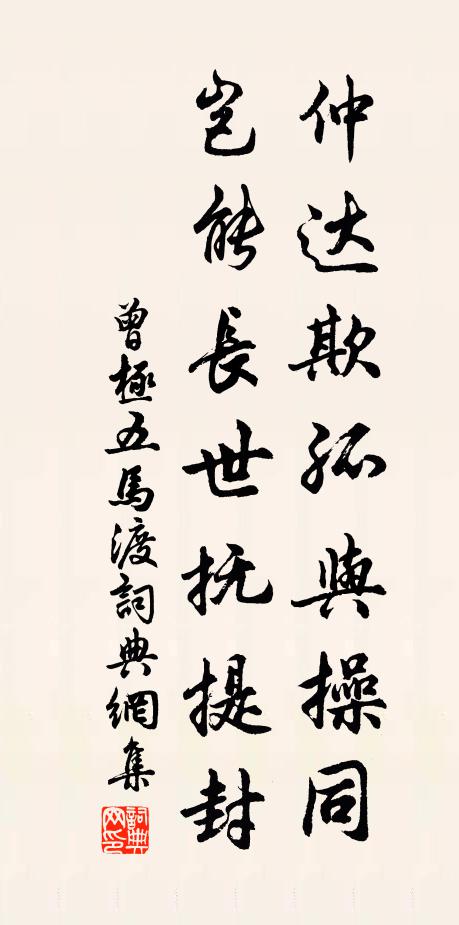 仲达欺孤與操同
岂能長世抚提封
曾極五馬渡詞典網集
詞典网印